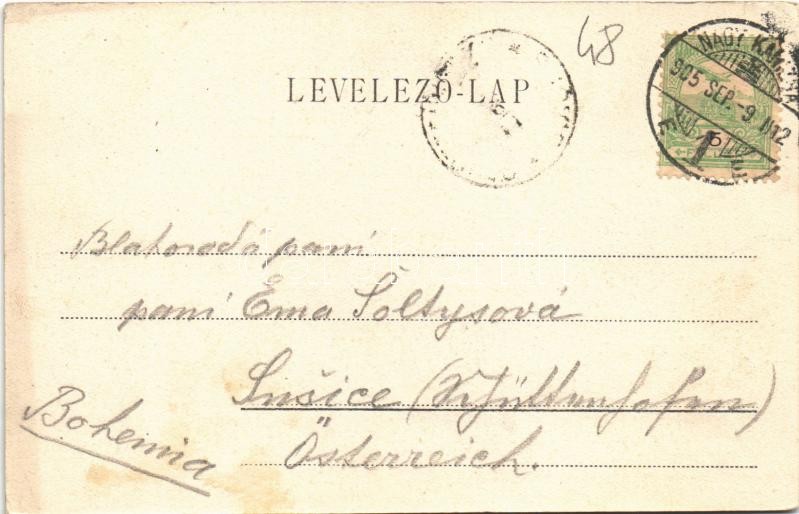 48
NAGY KANIZSA
905 SEP. -9 D12
LEVELEZŐ-LAP
Blahorodá paní
paní Ema Šoltysová
Sušice (Schüttenhofen)
Bohemia
Österreich.